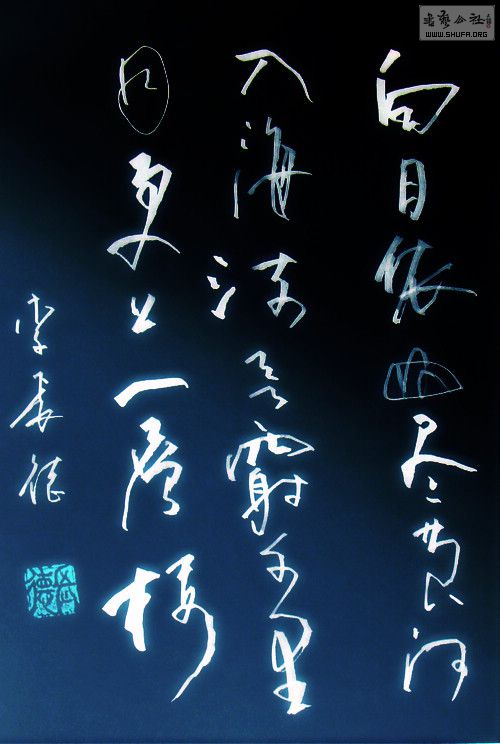 書藝公社
WWW.SHUFA.ORG
白日依山尽黄河
入海流欲窮千里
目更上一層楼
李長德